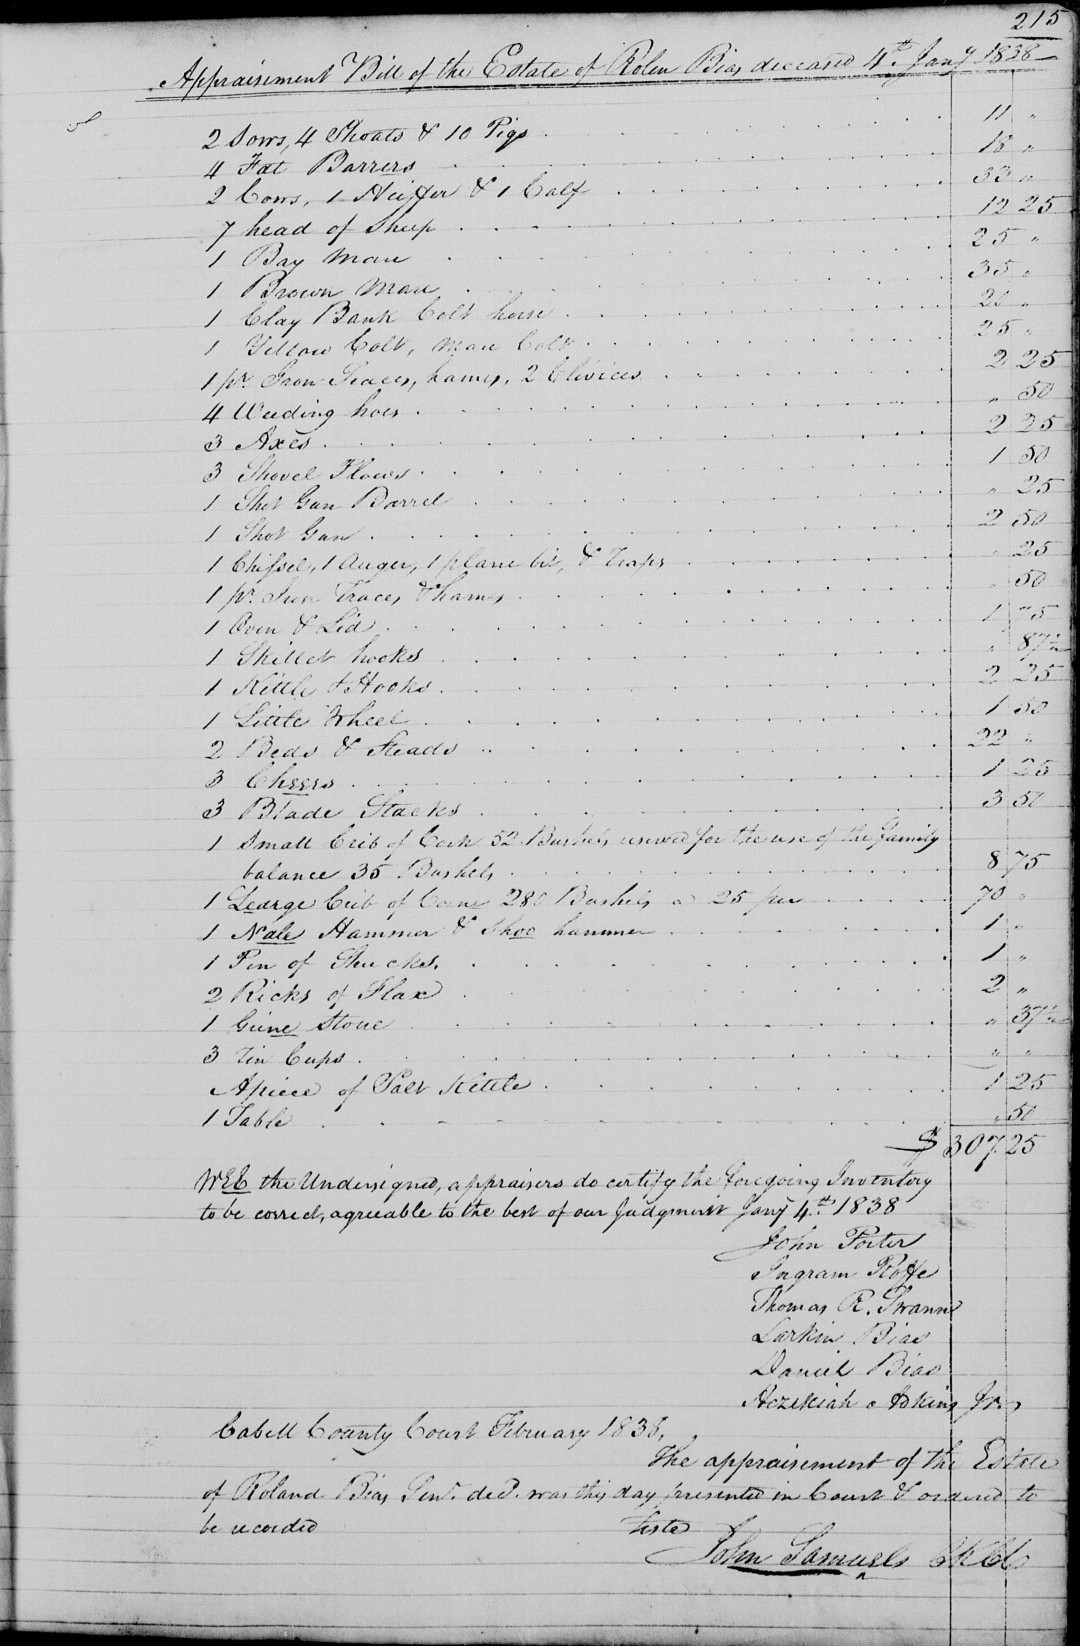 215
Appraisement Bill of the Estate of Rolen Bias deceased 4th Jany 1838
2 Sows, 4 Shoats & 10 Pigs 11 "
4 Fat Barrers 18 "
2 Cows, 1 Heiffer & 1 Calf 33 "
7 head of Sheep 12 25
1 Bay Mare 25 "
1 Brown Mare 35 "
1 Clay Bank Colt horse 20 "
1 Yellow Colt, Mare Colt 25 "
1 pr. Iron Traces, hames, 2 Clivices 2 25
4 Weeding hoes " 50
3 Axes 2 25
3 Shovel Plows 1 50
1 Shot Gun Barrel " 25
1 Shot Gun 2 50
1 Chissel, 1 Auger, 1 plane bit, & Traps " 25
1 pr. Iron Traces & hames " 50
1 Oven & Lid 1 75
1 Skillet hooks " 87½
1 Kettle & Hooks 2 25
1 Little Wheel 1 50
2 Beds & Steads 22 "
3 Cheers 1 25
3 Blade Stacks 3 50
1 Small Crib of Corn 52 Bushels reserved for the use of the family
balance 35 Bushels 8 75
1 Learge Crib of Corn 280 Bushels a 25 per 70 "
1 Nale Hammer & Shoo hammer 1 "
1 Pen of Shucks. 1 "
2 Ricks of Flax 2 "
1 Grine Stone " 37½
3 Tin Cups " "
A piece of Salt Kettle 1 25
1 Table " 50
$ 307 25
WEE the Undersigned, appraisers do certify the foregoing Inventory
to be correct, agreeable to the best of our Judgment Jany 4th 1838
John Porter
Ingram Roffe
Thomas R. Swann
Larkin Bias
Daniel Bias
Hezekiah Adkins Jr.
Cabell County Court February 1838,
The appraisement of the Estate
of Roland Bias Senr. decd. was this day presented in Court & ordered to
be recorded Teste
John Samuels